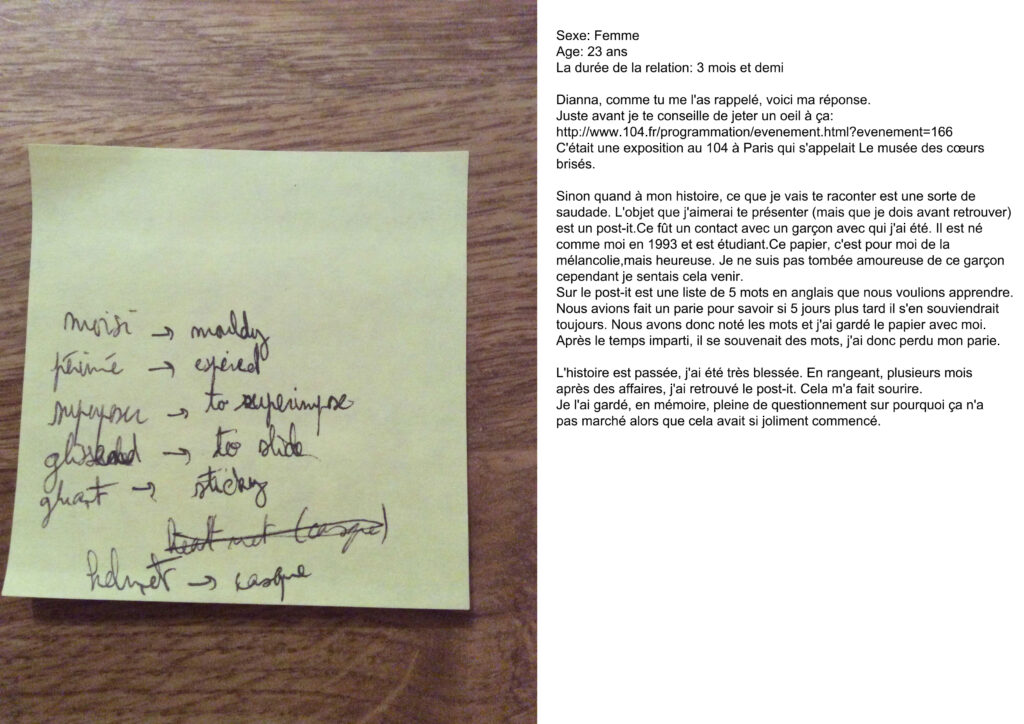 moisi → mouldy
périmé → expired
superposer → to superimpose
→ to slide
gluant → sticky
(casque)
helmet → casque
Sexe: Femme
Age: 23 ans
La durée de la relation: 3 mois et demi
Dianna, comme tu me l'as rappelé, voici ma réponse.
Juste avant je te conseille de jeter un oeil à ça:
http://www.104.fr/programmation/evenement.html?evenement=166
C'était une exposition au 104 à Paris qui s'appelait Le musée des cœurs
brisés.
Sinon quand à mon histoire, ce que je vais te raconter est une sorte de
saudade. L'objet que j'aimerai te présenter (mais que je dois avant retrouver)
est un post-it.Ce fût un contact avec un garçon avec qui j'ai été. Il est né
comme moi en 1993 et est étudiant.Ce papier, c'est pour moi de la
mélancolie,mais heureuse. Je ne suis pas tombée amoureuse de ce garçon
cependant je sentais cela venir.
Sur le post-it est une liste de 5 mots en anglais que nous voulions apprendre.
Nous avions fait un parie pour savoir si 5 jours plus tard il s'en souviendrait
toujours. Nous avons donc noté les mots et j'ai gardé le papier avec moi.
Après le temps imparti, il se souvenait des mots, j'ai donc perdu mon parie.
L'histoire est passée, j'ai été très blessée. En rangeant, plusieurs mois
après des affaires, j'ai retrouvé le post-it. Cela m'a fait sourire.
Je l'ai gardé, en mémoire, pleine de questionnement sur pourquoi ça n'a
pas marché alors que cela avait si joliment commencé.